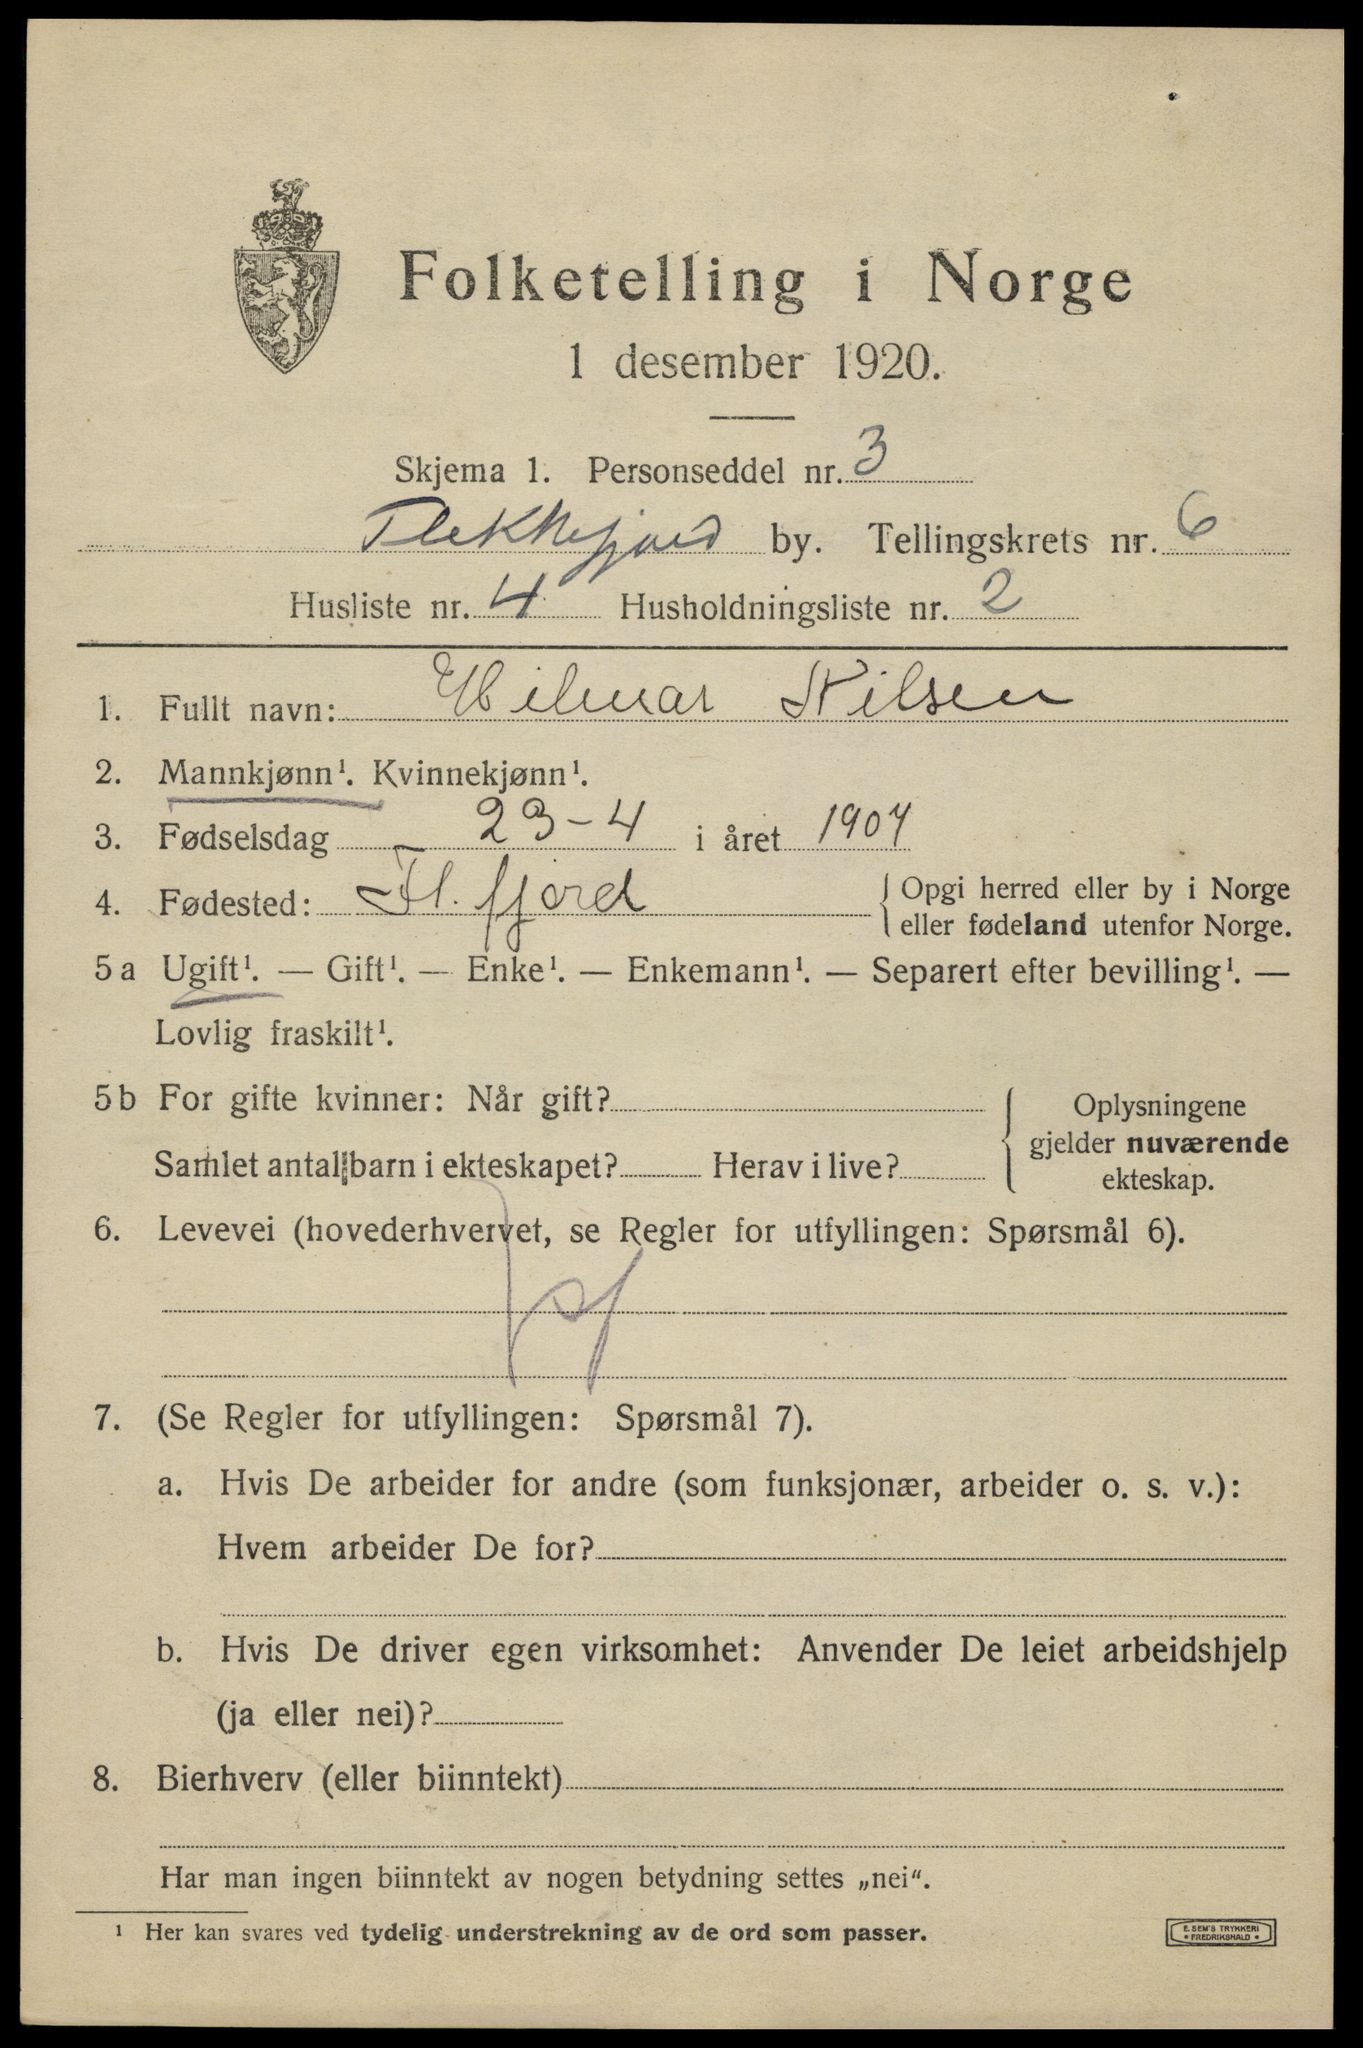 Folketelling i Norge
1 desember 1920.
Skjema 1. Personseddel nr. 3
Flekkefjord by. Tellingskrets nr. 6
Husliste nr. 4 Husholdningsliste nr. 2
1. Fullt navn: Hilmar Nilsen
2. Mannkjønn¹. Kvinnekjønn¹.
3. Fødselsdag 23-4 i året 1907
4. Fødested: Fl. fjord { Opgi herred eller by i Norge
eller fødeland utenfor Norge.
5 a Ugift¹. — Gift¹. — Enke¹. — Enkemann¹. — Separert efter bevilling¹. —
Lovlig fraskilt¹.
5 b For gifte kvinner: Når gift?
Samlet antal barn i ekteskapet? Herav i live?
Oplysningene
gjelder nuværende
ekteskap.
6. Levevei (hovederhvervet, se Regler for utfyllingen: Spørsmål 6).
7. (Se Regler for utfyllingen: Spørsmål 7).
a. Hvis De arbeider for andre (som funksjonær, arbeider o. s. v.):
Hvem arbeider De for?
b. Hvis De driver egen virksomhet: Anvender De leiet arbeidshjelp
(ja eller nei)?
8. Bierhverv (eller biinntekt)
Har man ingen biinntekt av nogen betydning settes „nei“.
¹ Her kan svares ved tydelig understrekning av de ord som passer.
E. SEM'S TRYKKERI
• FREDRIKSHALD •